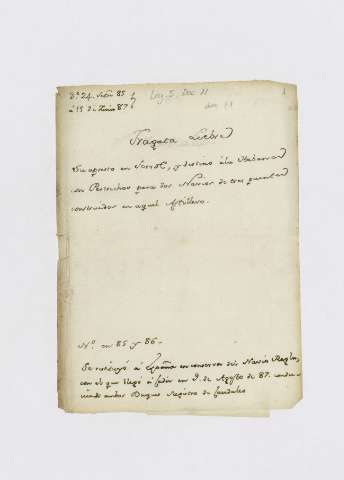 Dª 24. Septre 85
á 15 de Junio 87
Leg. 5. Doc 11
doc 11
1
Fragata Liebre
Su apresto en Ferrol, y destino á la Habana
con Pertrechos para dos Navios de tres puentes
construidos en aquel Astillero.
Nº en 85 y 86 –
Se restituyó á España en conserva del Navio Regla,
con el que llegó á Cadiz en 9. de Agosto de 87. condu-
ciendo ambos Buques Registro de Caudales